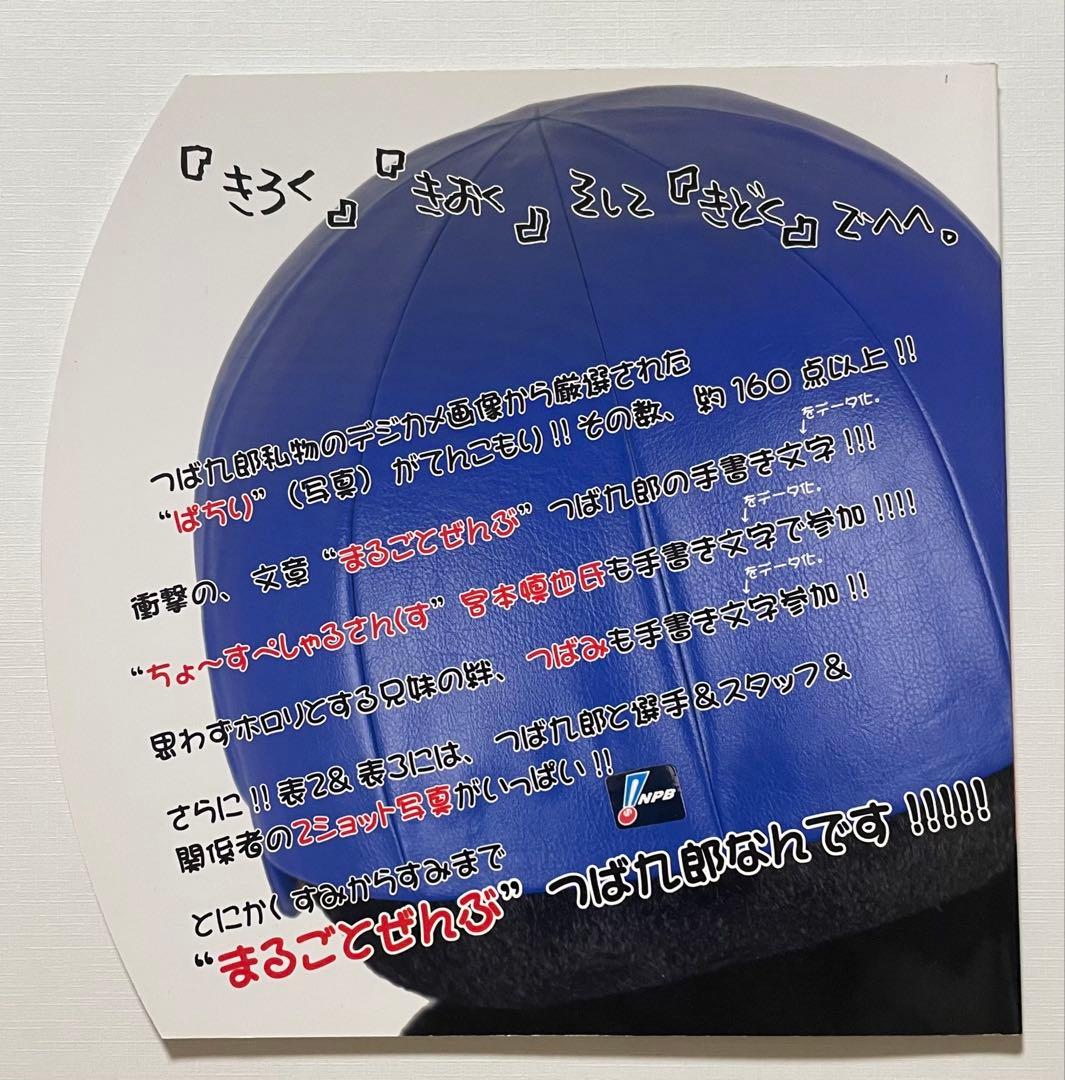 『きろく』『きおく』そして『きどく』でへへ。
つば九郎私物のデジカメ画像から厳選された
“ぱちり”（写真）がてんこもり!!その数、約160点以上!!
をデータ化。
衝撃の、文章“まるごとぜんぶ”つば九郎の手書き文字!!!
をデータ化。
“ちょ〜すぺしゃるさんくす”宮本慎也氏も手書き文字で参加!!!!
をデータ化。
思わずホロリとする兄妹の絆、つばみも手書き文字参加!!
さらに!!表2&表3には、つば九郎と選手&スタッフ&
関係者の2ショット写真がいっぱい!!
NPB
とにかくすみからすみまで
“まるごとぜんぶ”つば九郎なんです!!!!!